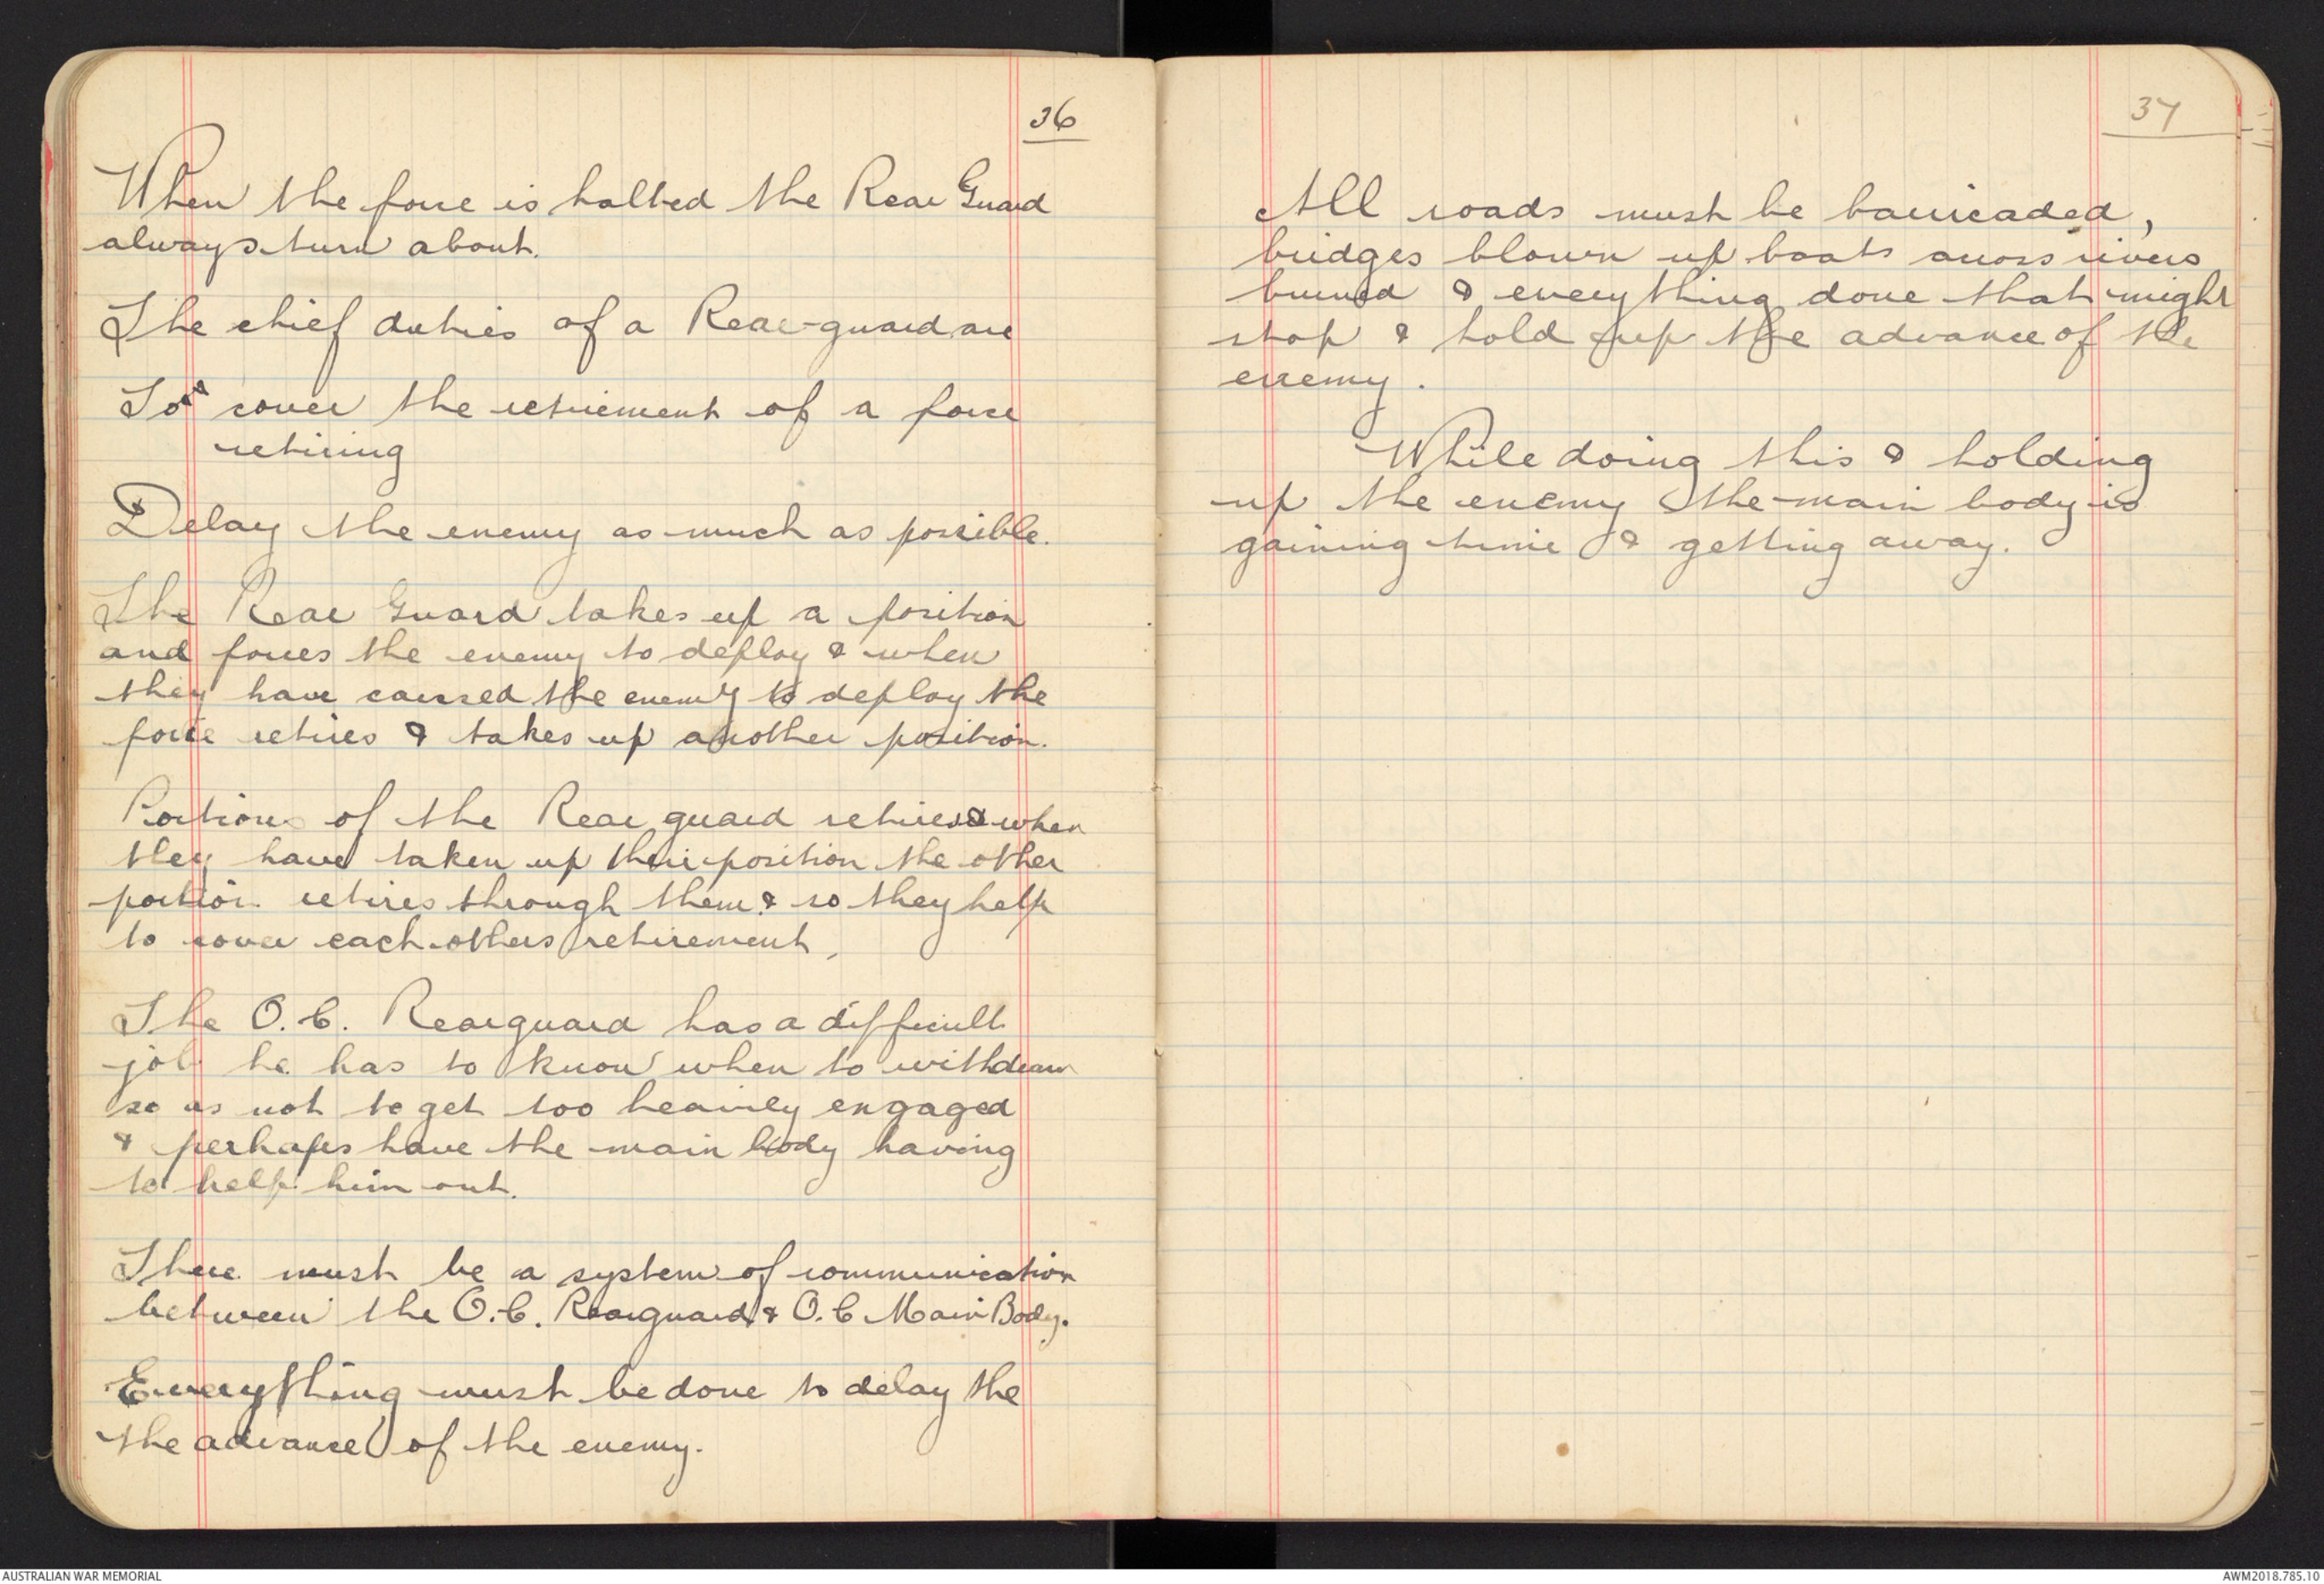 36
When the force is halted the Rear Guard
always turn about.
The chief duties of a Rear-guard are
To cover the retirement of a force
retiring
Delay the enemy as much as possible.
The Rear Guard takes up a position
and forces the enemy to deploy & when
they have caused the enemy to deploy the
force retires & takes up another position.
Portions of the Rear guard retires & when
they have taken up their position the other
portion retires through them & so they help
to cover each others retirement,
The O.C. Rearguard has a difficult
job he has to know when to withdraw
so as not to get too heavily engaged
& perhaps have the main body having
to help him out.
There must be a system of communication
between the O.C. Rearguard & O.C Main Body.
Everything must be done to delay the
the advance of the enemy.
37
All roads must be barricaded,
bridges blown up boats across rivers
burned & everything done that might
stop & hold up the advance of the
enemy.
While doing this & holding
up the enemy the main body is
gaining time & getting away.
AUSTRALIAN WAR MEMORIAL
AWM2018.785.10